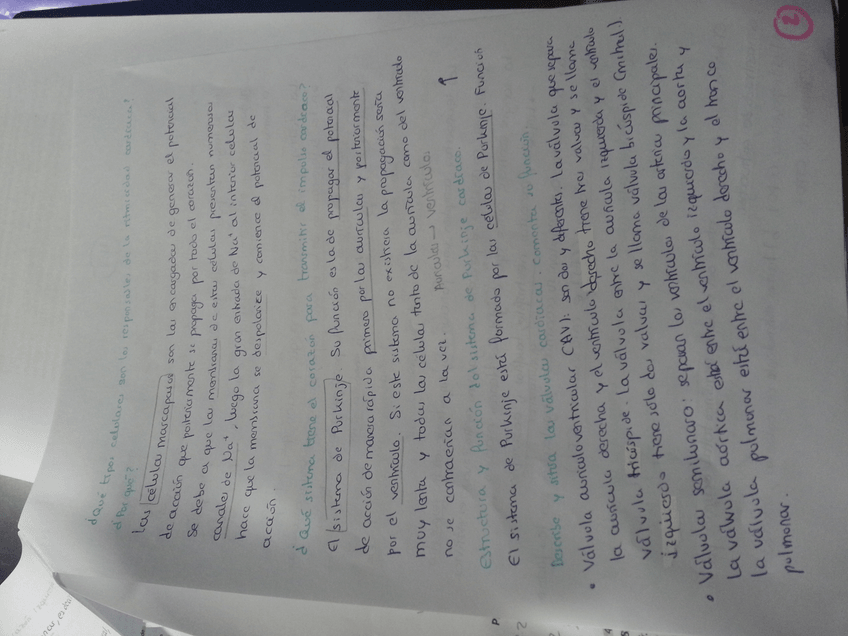 ¿Qué tipos celulares son los responsables de la ritmicidad cardíaca?
¿Por qué?
Las células marcapasos son las encargadas de generar el potencial
de acción que posteriormente se propaga por todo el corazón.
Se debe a que las membranas de estas células presentan numerosos
canales de Na+, luego la gran entrada de Na+ al interior celular
hace que la membrana se despolarice y comience el potencial de
acción.
¿Qué sistema tiene el corazón para transmitir el impulso cardíaco?
El sistema de Purkinje. Su función es la de propagar el potencial
de acción de manera rápida primero por las aurículas y posteriormente
por el ventrículo. Si este sistema no existiera la propagación sería
muy lenta y todas las células tanto de la aurícula como del ventrículo
no se contraerían a la vez. Aurículas → ventrículo.
Estructura y función del sistema de Purkinje cardíaco.
El sistema de Purkinje está formado por las células de Purkinje. Función ↑
Describe y sitúa las válvulas cardíacas: comenta su función.
• Válvula auriculoventricular (AV): son dos y diferentes. La válvula que separa
la aurícula derecha y el ventrículo derecho tiene tres valvas y se llama
válvula tricúspide. La válvula entre la aurícula izquierda y el ventrículo
izquierdo tiene sólo dos valvas y se llama válvula bicúspide (mitral).
• Válvulas semilunares: separan los ventrículos de las arterias principales.
La válvula aórtica está entre el ventrículo izquierdo y la aorta y
la válvula pulmonar está entre el ventrículo derecho y el tronco
pulmonar.
2